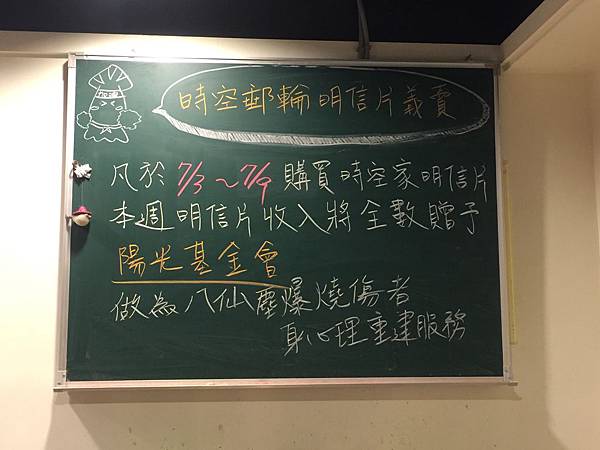 加油
時空郵輪明信片義賣
凡於 7/3～7/9 購買時空家明信片
本週明信片收入將全數贈予
陽光基金會
做為八仙塵爆燒傷者
身心理重建服務